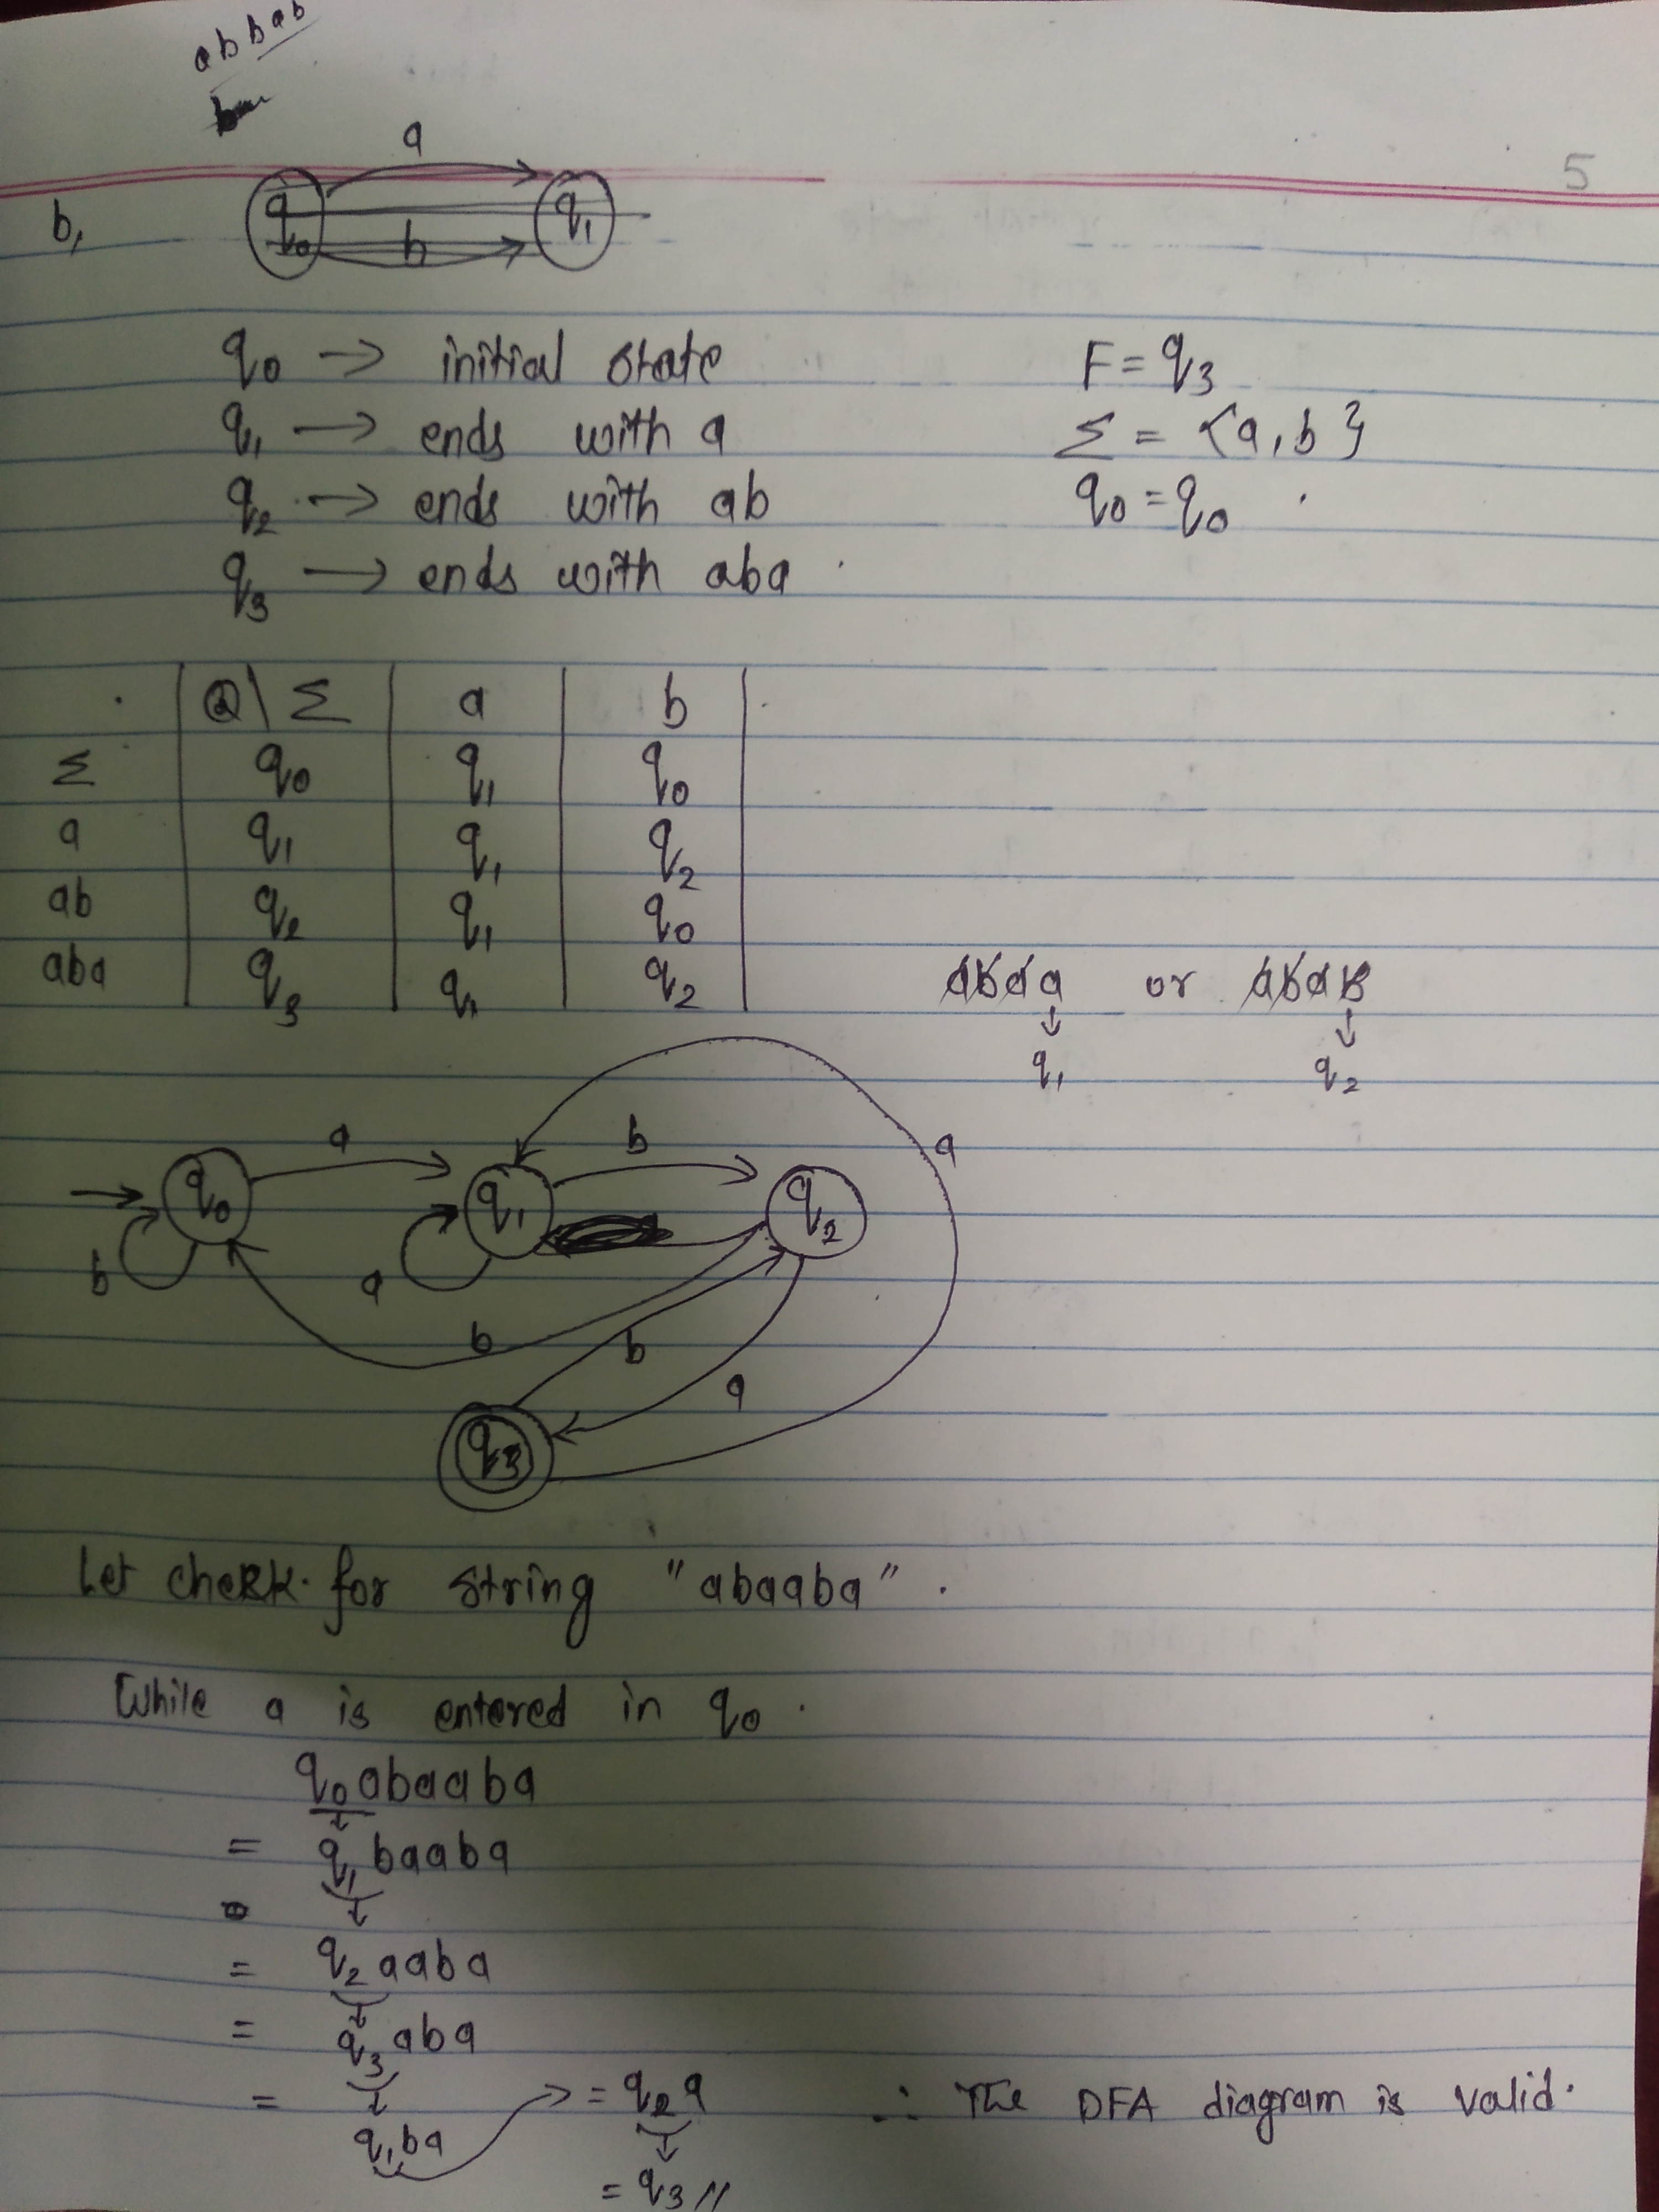 abbab
5
a
b, q0 q1
b
q0 → initial state F = q3
q1 → ends with a Σ = {a, b}
q2 → ends with ab q0 = q0
q3 → ends with aba
Q \ Σ a b
Σ q0 q1 q0
a q1 q1 q2
ab q2 q1 q0
aba q3 q1 q2
abaa or abab
↓ ↓
q1 q2
a b a
→ q0 q1 q2
b a
b b
a
q3
Let check for string "abaaba".
While a is entered in q0.
q0 abaaba
↓
= q1 baaba
↓
= q2 aaba
↓
= q3 aba
↓
= q1 ba → = q2 a
↓
= q3 //
∴ The DFA diagram is valid.